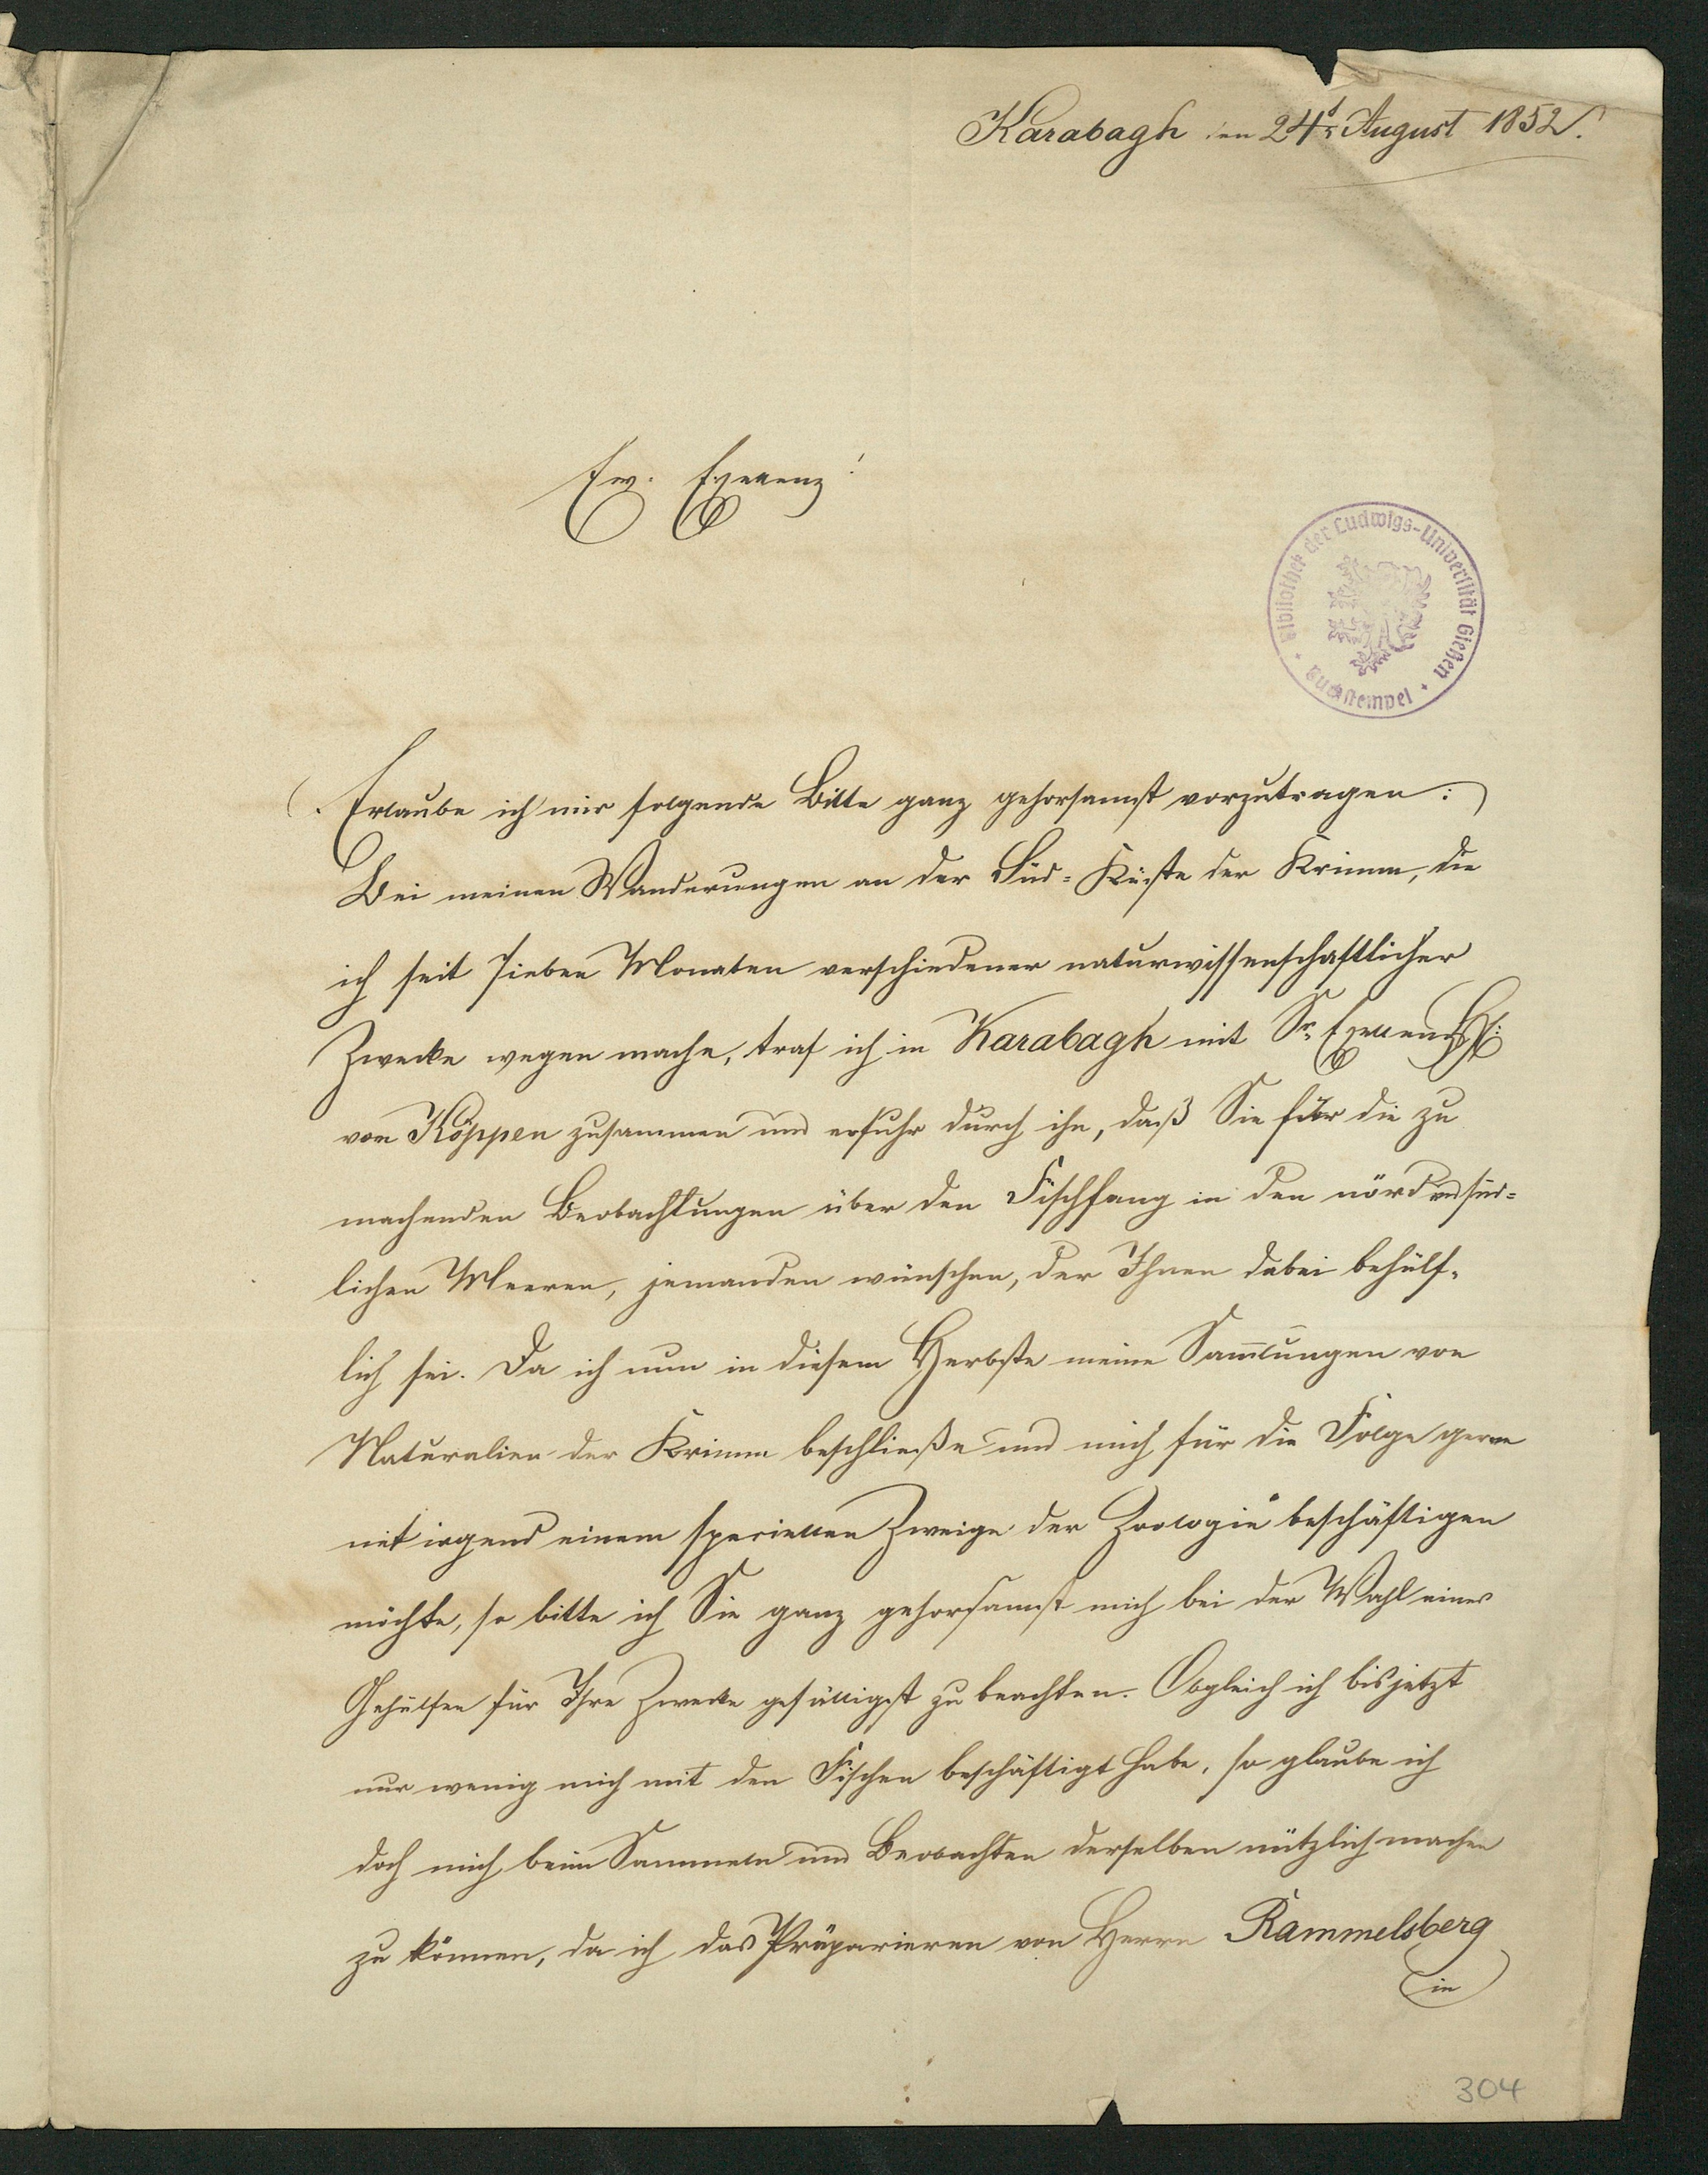 Karabagh den 24t August 1852.
Ew. Exzellenz!
Bibliothek der Ludwigs-Universität Gießen
Buchstempel
Erlaube ich mir folgende Bitte ganz gehorsamst vorzutragen:
Bei meinen Wanderungen an der Süd-Küste der Krimm, die
ich seit sieben Monaten verschiedener naturwissenschaftlicher
Zwecke wegen mache, traf ich in Karabagh mit Sr. Exzellenz H:
von Köppen zusammen und erfuhr durch ihn, daß Sie für die zu
machenden Beobachtungen über den Fischfang in den nörd und süd=
lichen Meeren, jemanden wünschen, der Ihnen dabei behülf-
lich sei. Da ich nun in diesem Herbste meine Sammlungen von
Naturalien der Krimm beschließe und mich für die Folge gerne
mit irgend einem speciellen Zweige der Zoologie beschäftigen
möchte, so bitte ich Sie ganz gehorsamst mich bei der Wahl eines
Gehülfen für Ihre Zwecke gefälligst zu beachten. Obgleich ich bis jetzt
nur wenig mich mit den Fischen beschäftigt habe, so glaube ich
doch mich beim Sammeln und Beobachten derselben nützlich machen
zu können, da ich das Präparieren von Herrn Rammelsberg
in
304